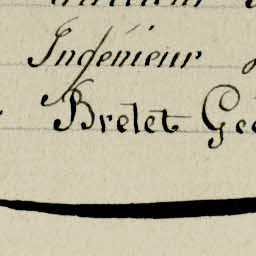 Ingénieur
Brelet Geo